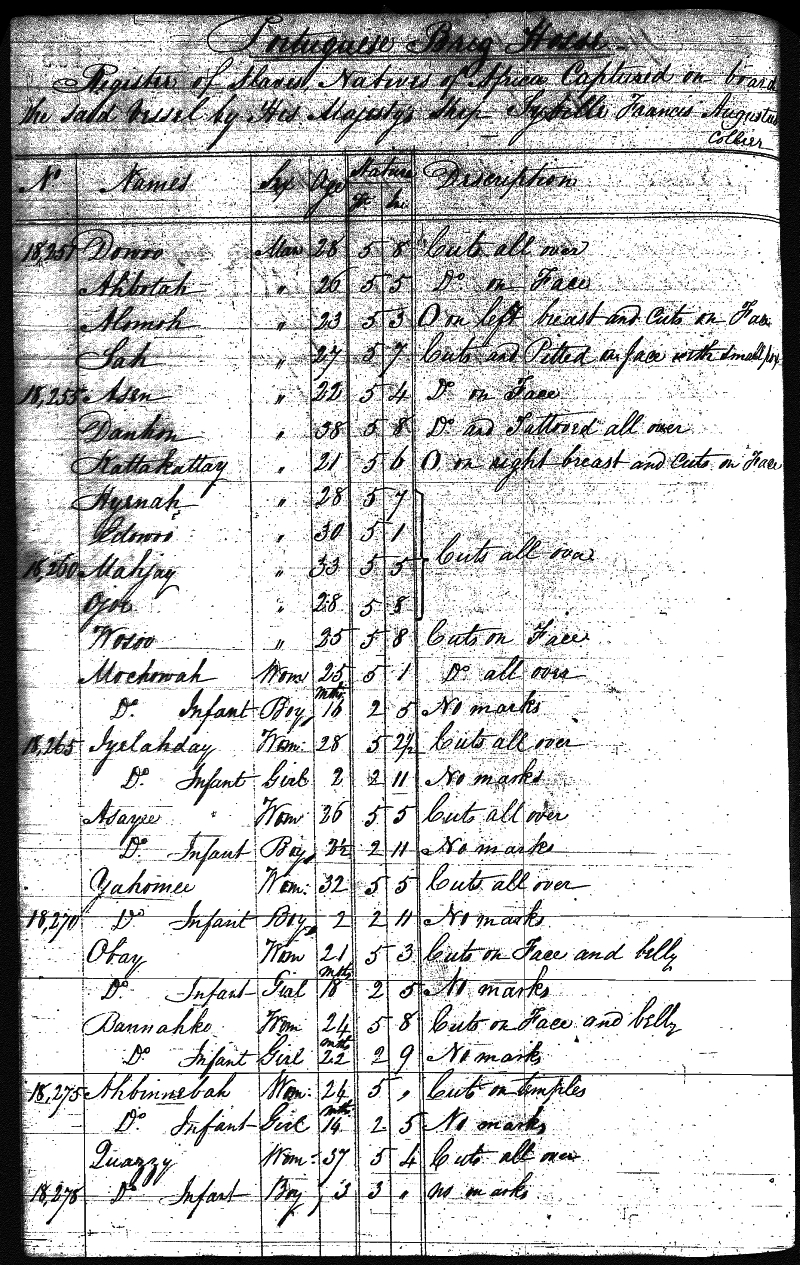 Portuguese Brig Hosse
Register of Slaves, Natives of Africa Captured on board
the said Vessel by His Majesty's Ship Sybille Francis Augustus
Collier
No Names Sex Age Stature Description
ft. in.
18,251 Dowoo Man 28 5 8 Cuts all over
Ahbotah " 26 5 5 Do on Face
Alomoh " 23 5 3 O on left breast and cuts on Face
Sah " 27 5 7 Cuts and Pitted on face with small pox
18,255 Asen " 22 5 4 Do on Face
Dankon " 38 5 8 Do and Tattooed all over
Kattakattay " 21 5 6 O on right breast and cuts on Face
Hyenah " 28 5 7
Edowoo " 30 5 1
Cuts all over
18,260 Mahjay " 33 5 5
Ojoe " 28 5 8
Wosoo " 25 5 8 Cuts on Face
Mochowah Wom: 25 5 1 Do all over
Do Infant Boy mths 16 2 5 No marks
18,265 Iyelahday Wom: 28 5 2½ Cuts all over
Do Infant Girl 2 2 11 No marks
Asayee Wom 26 5 5 Cuts all over
Do Infant Boy 2½ 2 11 No marks
Yahomee Wom: 32 5 5 Cuts all over
18,270 Do Infant Boy 2 2 11 No marks
Obay Wom 21 5 3 Cuts on Face and belly
Do Infant Girl mths 18 2 5 No marks
Bannahko Wom 24 5 8 Cuts on Face and belly
Do Infant Girl mths 22 2 9 No marks
18,275 Ahbinnebah Wom: 24 5 " Cuts on temples
Do Infant Girl mths 14 2 5 No marks
Quazzy Wom: 37 5 4 Cuts all over
18,278 Do Infant Boy 3 3 " no marks